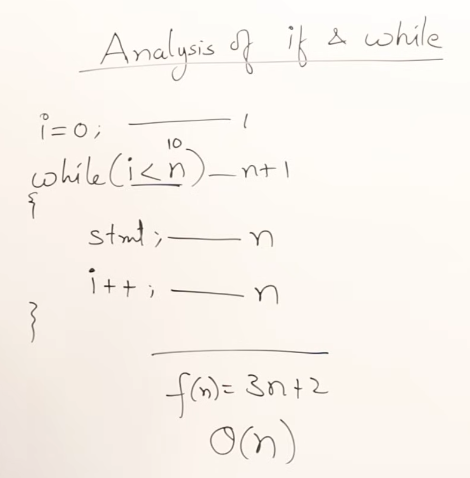 Analysis of if & while
i=0; 1
10
while(i<n) n+1
{
stmt; n
i++; n
}
f(n)= 3n+2
O(n)